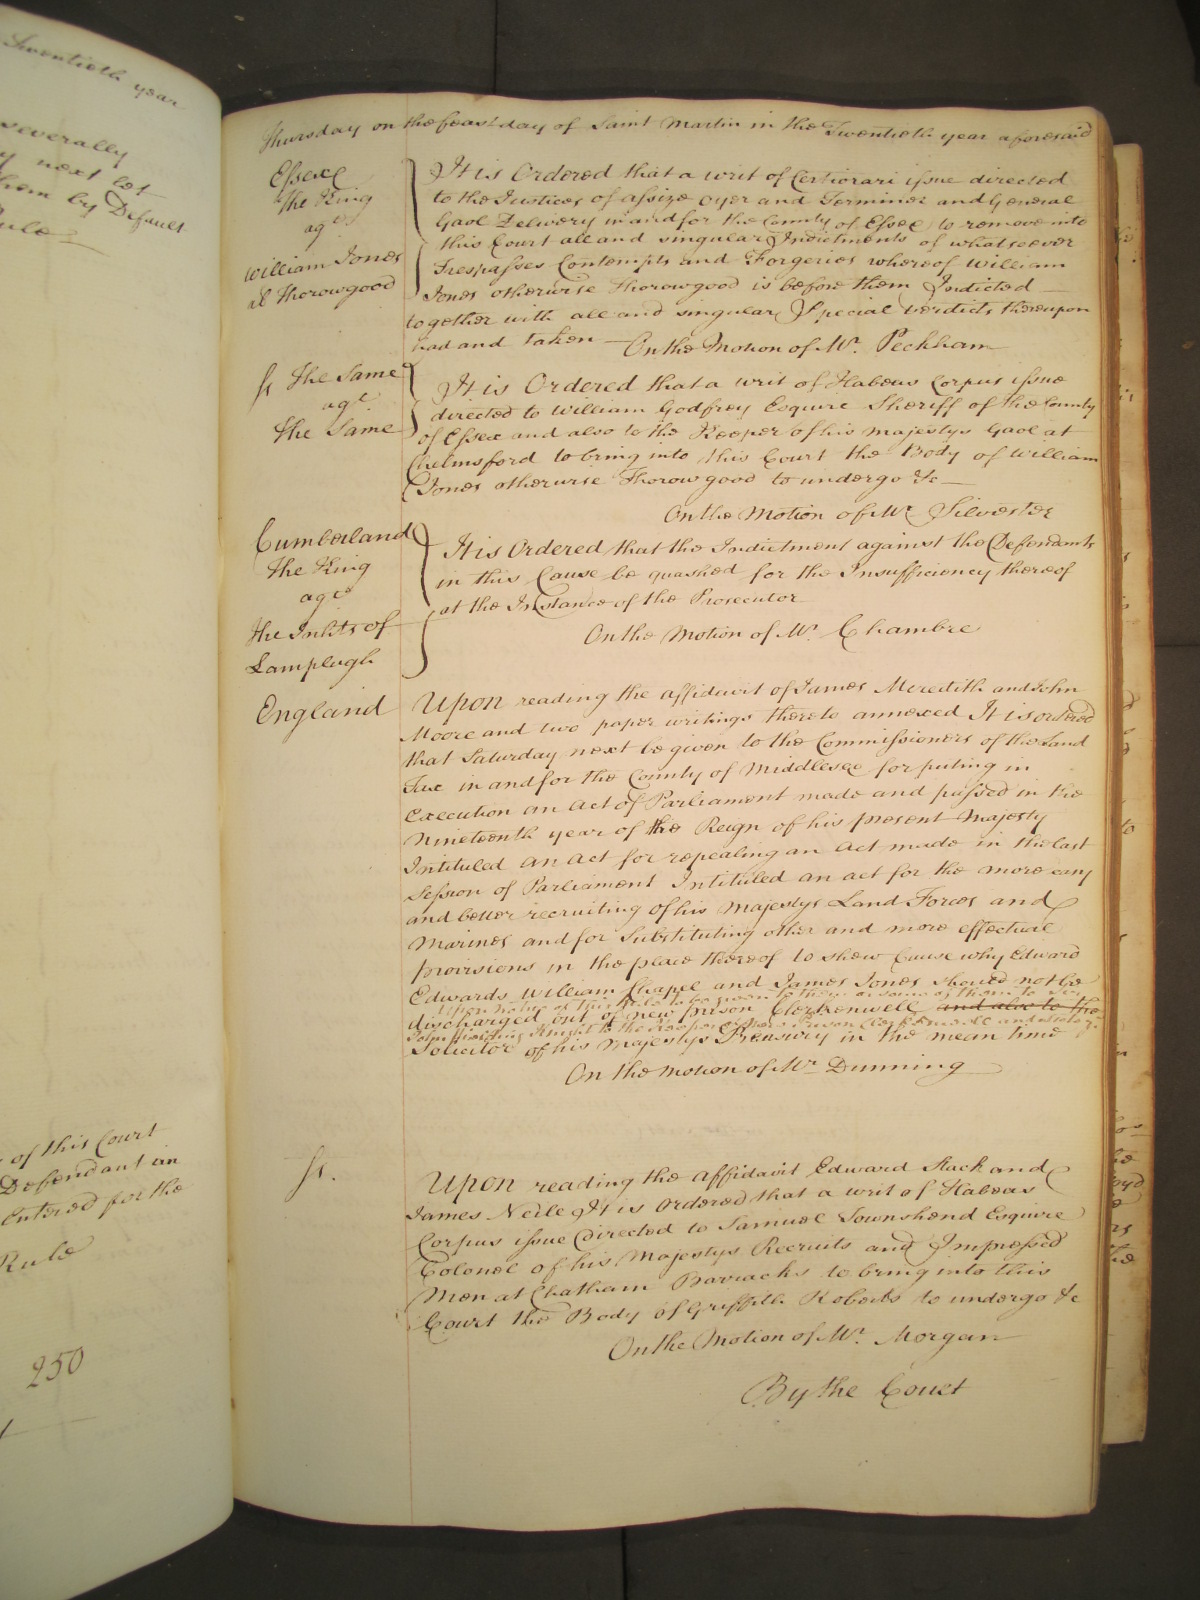 Twentieth year
severally
next let
them by Default
Rule
of this Court
Defendant an
entered for the
Rule
250
Thursday on the feast day of Saint Martin in the Twentieth year aforesaid
Essex
The King
agt
William Jones
als Thorowgood
It is Ordered that a writ of Certiorari issue directed
to the Justices of assize oyer and Terminer and General
Gaol Delivery in and for the County of Essex to remove into
this Court all and singular Indictments of whatsoever
Trespasses Contempts and Forgeries whereof William
Jones otherwise Thorowgood is before them Indicted
together with all and singular Special Verdicts thereupon
had and taken On the Motion of Mr. Peckham
Ss The Same
agt.
The Same
It is Ordered that a writ of Habeas Corpus issue
directed to William Godfrey Esquire Sheriff of the County
of Essex and also to the Keeper of his majestys Gaol at
Chelmsford to bring into this Court the Body of William
Jones otherwise Thorowgood to undergo &c
On the Motion of Mr Silvester
Cumberland
The King
agt
The Inhts of
Lamplugh
It is Ordered that the Indictment against the Defendants
in this Cause be quashed for the Insufficiency thereof
at the Instance of the Prosecutor
On the Motion of Mr. Chambre
England
Upon reading the affidavit of James Meredith and John
Moore and two paper writings thereto annexed It is ordered
that Saturday next be given to the Commissioners of the Land
Tax in and for the County of Middlesex for puting in
execution an Act of Parliament made and passed in the
Nineteenth year of the Reign of his present Majesty
Intituled an Act for repealing an Act made in the last
Session of Parliament Intituled an act for the more easy
and better recruiting of his Majestys Land Forces and
Marines and for Substituting other and more effectual
provisions in the place thereof to shew Cause why Edward
Edwards William Chapel and James Jones should not be
Upon notice of this Rule to be given to them or some of them to Sir
discharged out of new prison Clerkenwell and also to the
John Fielding Knight to the Keeper of New Prison Clerkenwell and also to the
Solicitor of his Majestys Treasury in the mean time
On the Motion of Mr Dunning
Ss.
Upon reading the affidavit Edward Stack and
James Neile It is Ordered that a writ of Habeas
Corpus issue Directed to Samuel Townshend Esquire
Colonel of his Majestys Recruits and Impressed
Men at Chatham Barracks to bring into this
Court the Body of Griffith Roberts to undergo &c
On the Motion of Mr. Morgan
By the Court